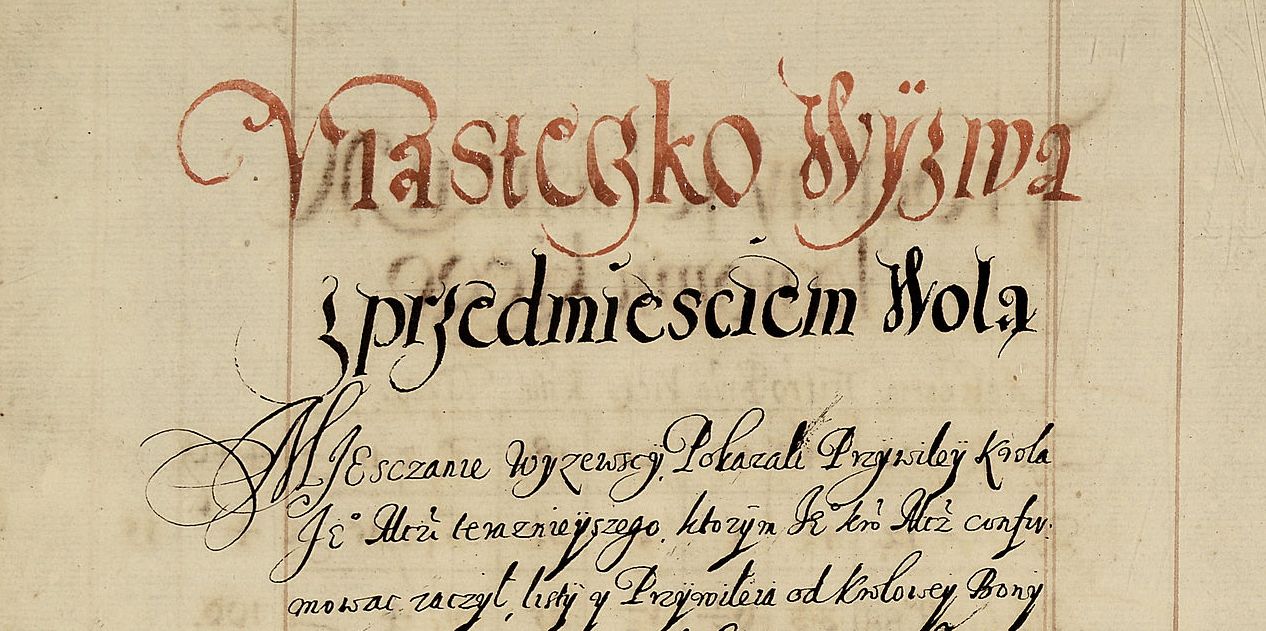 Miasteczko Wÿzwa
z przedmiesciem Wola
MJEsczanie Wyzewscy, Pokazali Przywiley Krola
Jeº Mczi teraznieÿszego, ktorÿm Jeº kro Mcz confir-
mowac raczyl, listÿ y Przÿwileia od Krolowey Bony